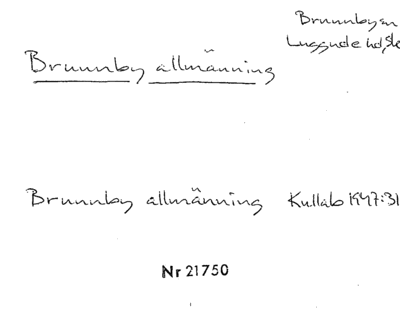 Brunnby sn
Luggude hd, Sk
Brunnby allmänning
Brunnby allmänning Kullab 1947:31
Nr 21750